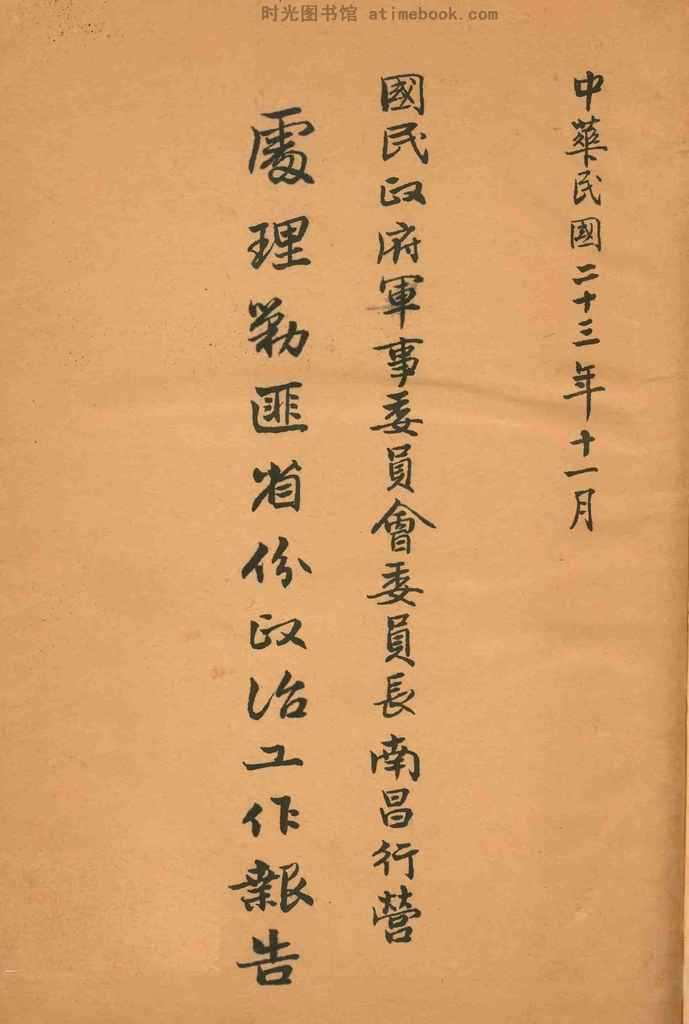 时光图书馆 atimebook.com
中華民國二十三年十一月
國民政府軍事委員會委員長南昌行營
處理剿匪省份政治工作報告